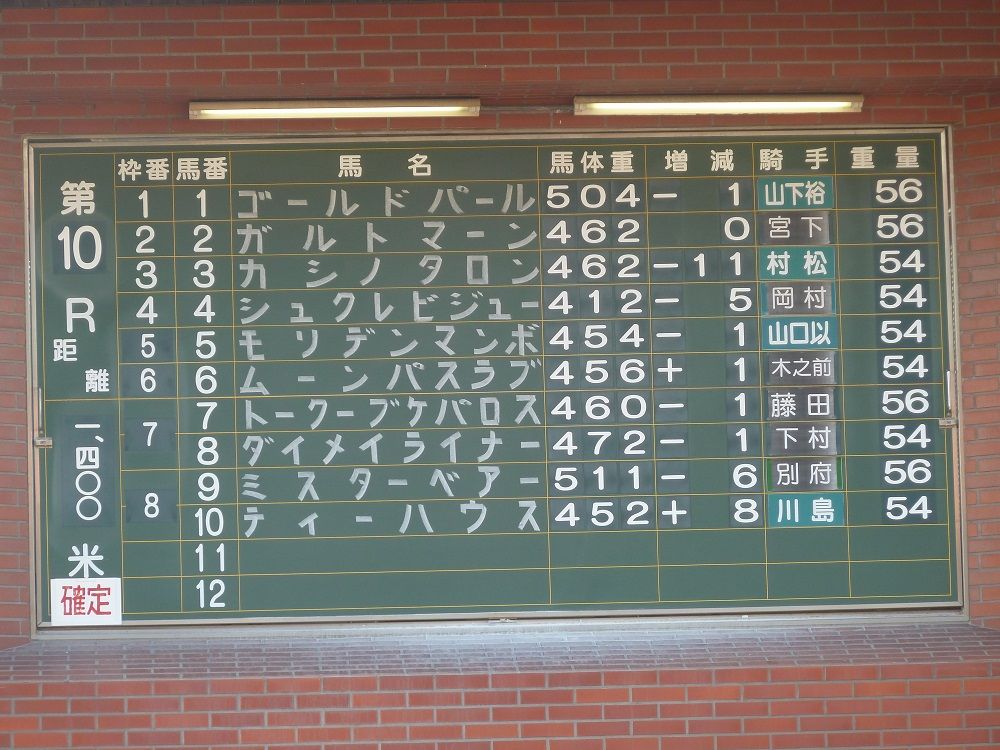 枠番 馬番 馬名 馬体重 増減 騎手 重量
第10R
距離
一、四〇〇米
確定
1 1 ゴールドパール 504 − 1 山下裕 56
2 2 ガルトマーン 462 0 宮下 56
3 3 カシノタロン 462 −11 村松 54
4 4 シュクレビジュー 412 − 5 岡村 54
5 5 モリデンマンボ 454 − 1 山口以 54
6 6 ムーンパスラブ 456 + 1 木之前 54
7 7 トークーブケパロス 460 − 1 藤田 56
8 ダイメイライナー 472 − 1 下村 54
8 9 ミスターベアー 511 − 6 別府 56
10 ティーハウス 452 + 8 川島 54
11
12